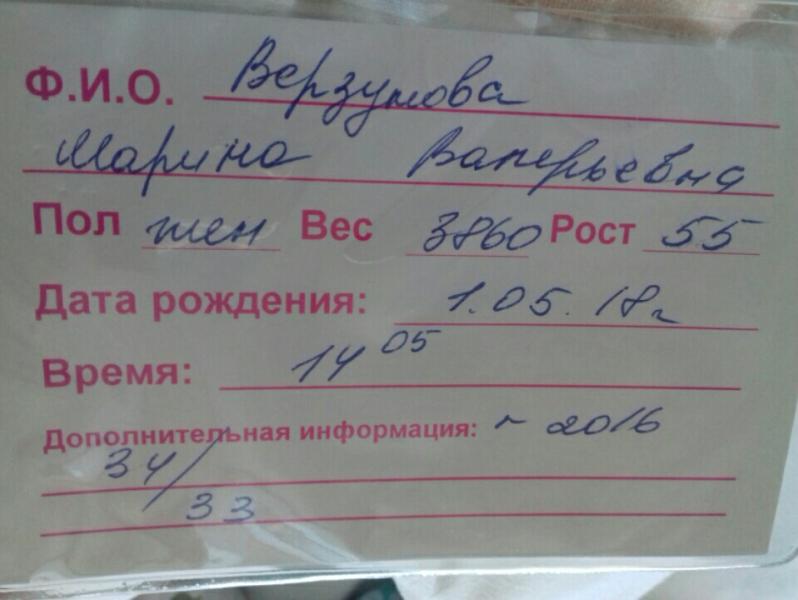 Ф.И.О. Верзунова
Марина Валерьевна
Пол жен Вес 3860 Рост 55
Дата рождения: 1.05.18г
Время: 14 05
Дополнительная информация: 2016
34/
33